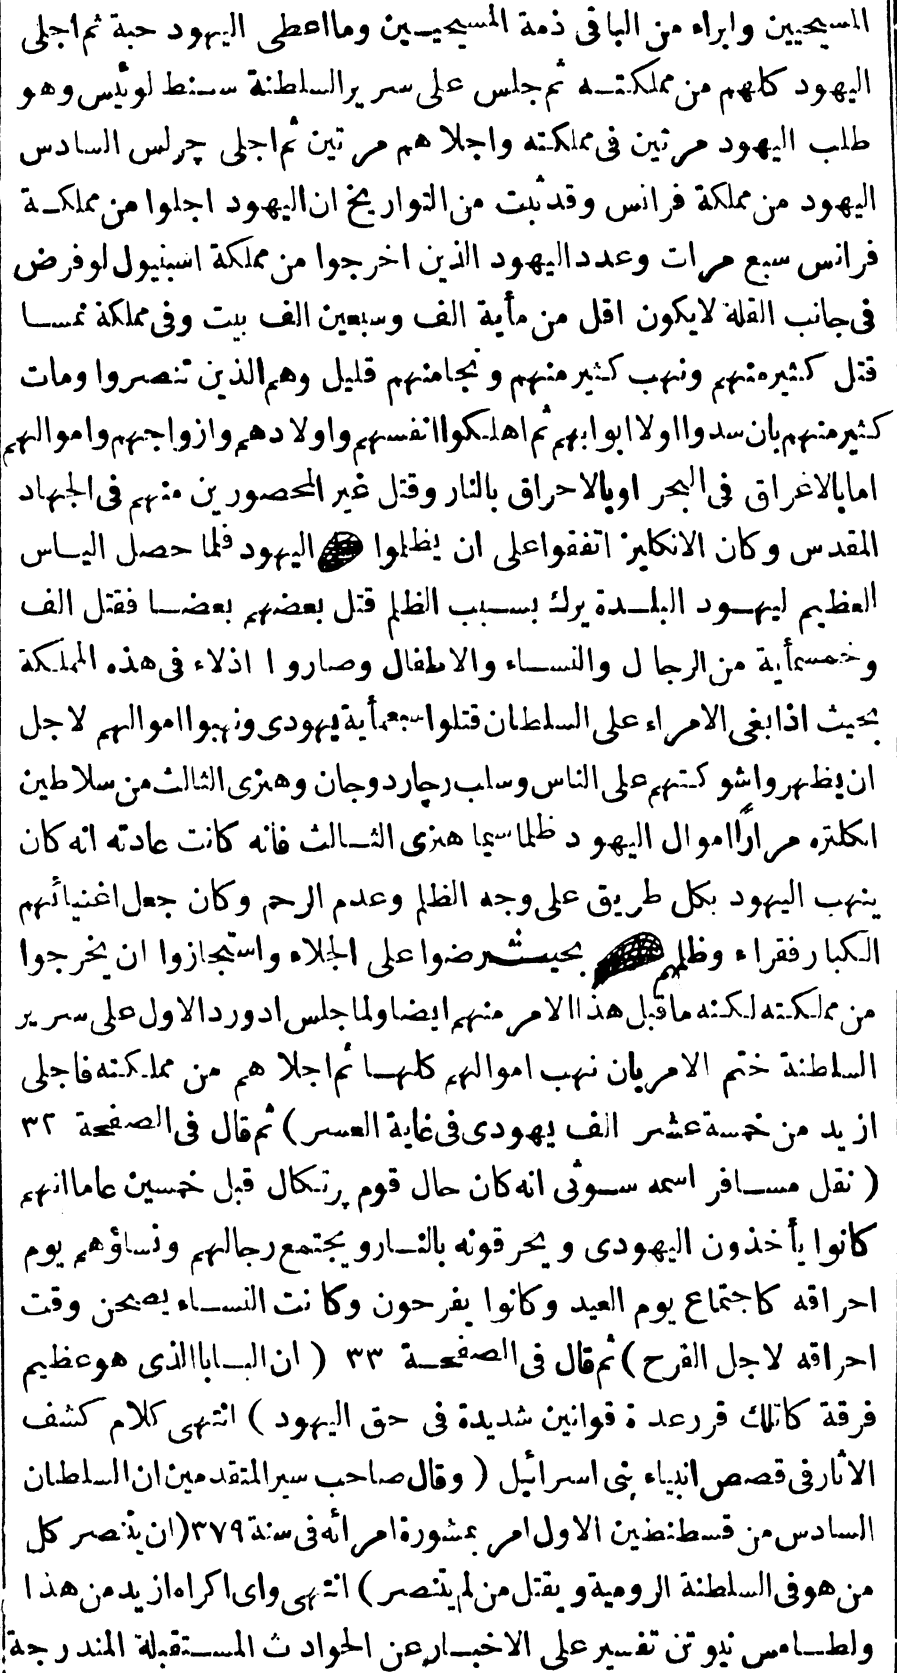 المسيحيين وابراء من الباقى ذمة المسيحيين ومااعطى اليهود حبة ثم اجلى
اليهود كلهم من مملكته ثم جلس على سرير السلطنة سنط لوئيس وهو
طلب اليهود مرتين فى مملكته واجلاهم مرتين ثم اجلى چرلس السادس
اليهود من مملكة فرانس وقد ثبت من التواريخ ان اليهود اجلوا من مملكة
فرانس سبع مرات وعدد اليهود الذين اخرجوا من مملكة اسبنيول لو فرض
فى جانب القلة لايكون اقل من مأية الف وسبعين الف بيت وفى مملكة نمسا
قتل كثير منهم ونهب كثير منهم ونجا منهم قليل وهم الذين تنصروا ومات
كثير منهم بان سدوا اولا ابوابهم ثم اهلكوا انفسهم واولادهم وازواجهم واموالهم
اما بالاغراق فى البحر او بالاحراق بالنار وقتل غير المحصورين منهم فى الجهاد
المقدس وكان الانكليز اتفقوا على ان يظلموا اليهود فلما حصل الياس
العظيم ليهود البلدة يرك بسبب الظلم قتل بعضهم بعضا فقتل الف
وخمسمأية من الرجال والنساء والاطفال وصاروا اذلاء فى هذه المملكة
بحيث اذا بغى الامراء على السلطان قتلوا سبعمأية يهودى ونهبوا اموالهم لاجل
ان يظهروا شوكتهم على الناس وسلب رچارد وجان وهنرى الثالث من سلاطين
انكلتره مرارًا اموال اليهود ظلما سيما هنرى الثالث فانه كانت عادته انه كان
ينهب اليهود بكل طريق على وجه الظلم وعدم الرحم وكان جعل اغنيائهم
الكبار فقراء وظلمهم بحيث رضوا على الجلاء واستجازوا ان يخرجوا
من مملكته لكنه ماقبل هذا الامر منهم ايضا ولما جلس ادورد الاول على سرير
السلطنة ختم الامر بان نهب اموالهم كلها ثم اجلاهم من مملكته فاجلى
ازيد من خمسة عشر الف يهودى فى غاية العسر ) ثم قال فى الصفحة ٣٢
( نقل مسافر اسمه سوئى انه كان حال قوم پرتكال قبل خمسين عاما انهم
كانوا يأخذون اليهودى ويحرقونه بالنار ويجتمع رجالهم ونساؤهم يوم
احراقه كاجتماع يوم العيد وكانوا يفرحون وكانت النساء يصحن وقت
احراقه لاجل الفرح ) ثم قال فى الصفحة ٣٣ ( ان الپاپا الذى هو عظيم
فرقة كاتلك قرر عدة قوانين شديدة فى حق اليهود ) انتهى كلام كشف
الاثار فى قصص انبياء بنى اسرائيل ( وقال صاحب سير المتقدمين ان السلطان
السادس من قسطنطين الاول امر بمشورة امرائه فى سنة ٣٧٩ (ان يتنصر كل
من هو فى السلطنة الرومية ويقتل من لم يتنصر ) انتهى واى اكراه ازيد من هذا
ولطامس نيوتن تفسير على الاخبار عن الحوادث المستقبلة المندرجة